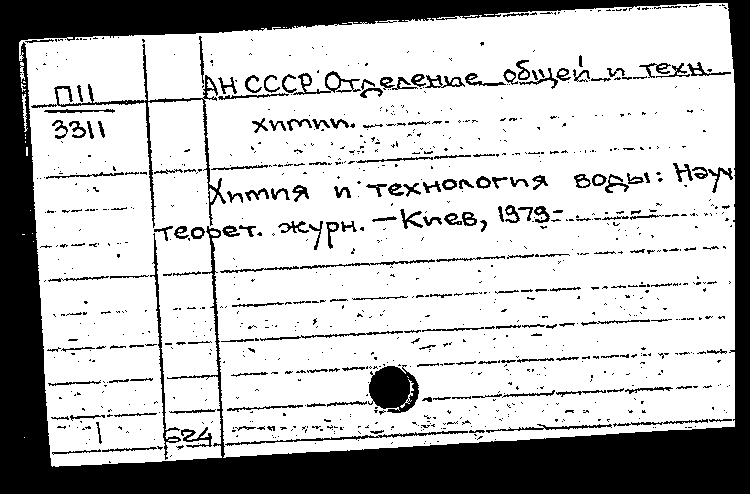 П11
3311
АН СССР. Отделение общей и техн.
химии.
Химия и технология воды: Науч
теорет. журн. — Киев, 1979-
1
624